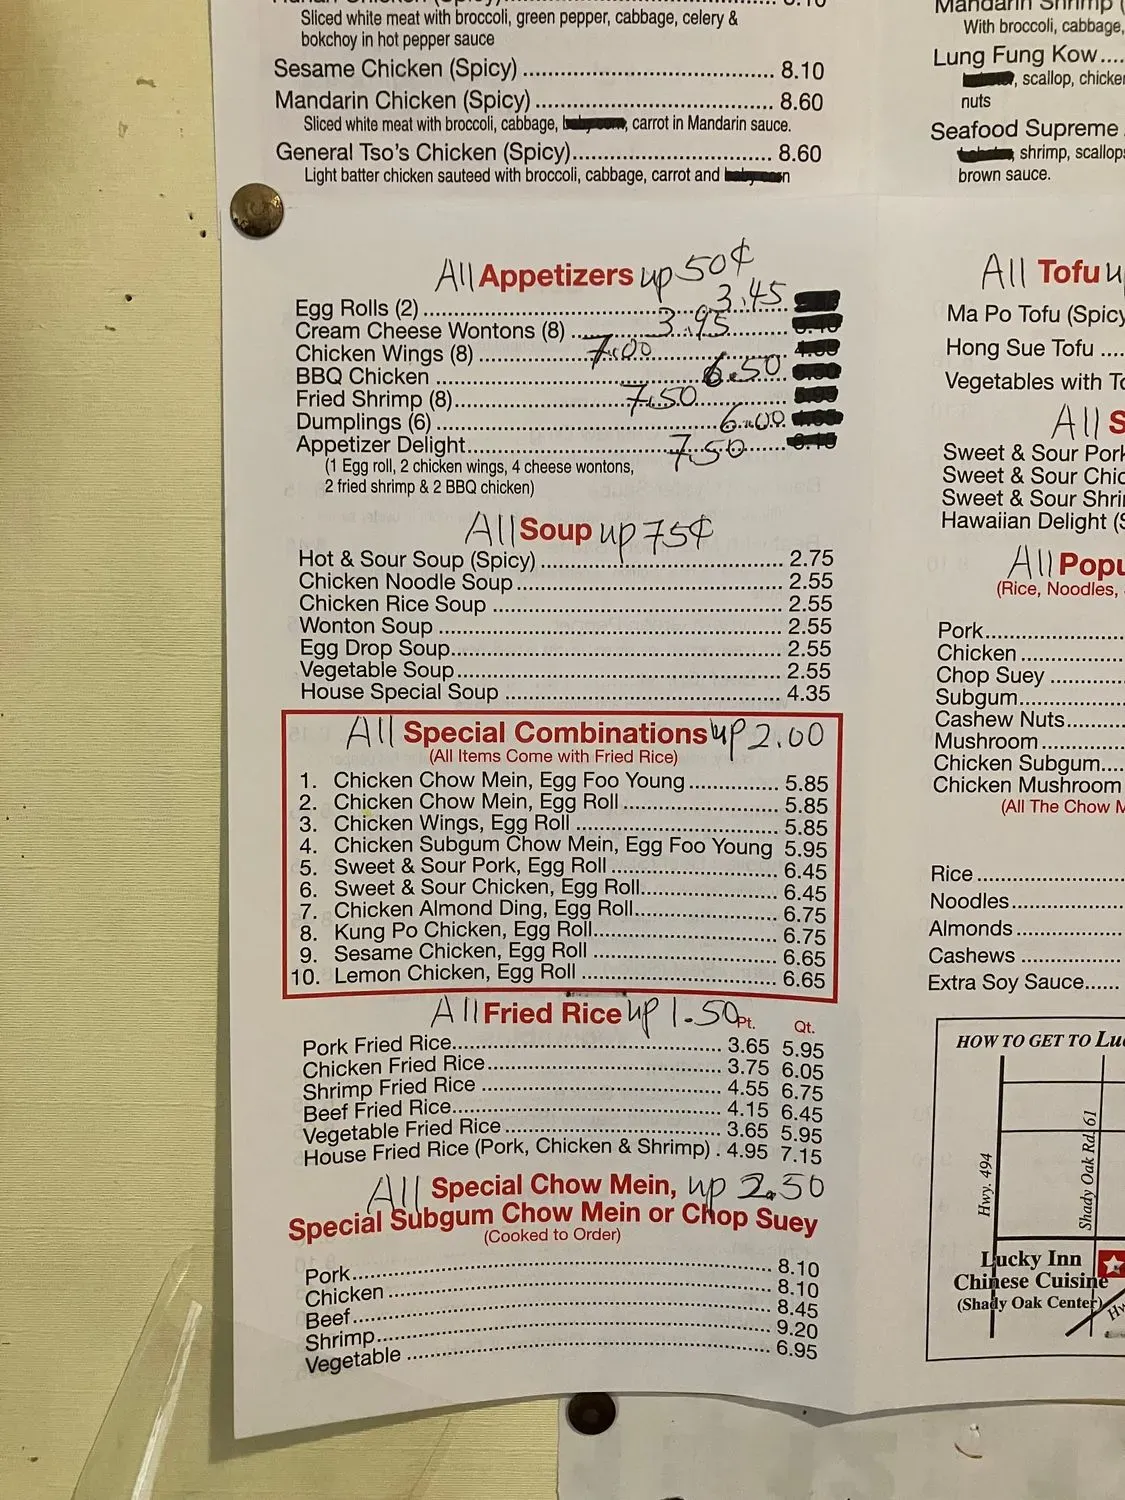 Sliced white meat with broccoli, green pepper, cabbage, celery &
bokchoy in hot pepper sauce
Sesame Chicken (Spicy) 8.10
Mandarin Chicken (Spicy) 8.60
Sliced white meat with broccoli, cabbage, carrot in Mandarin sauce.
General Tso's Chicken (Spicy) 8.60
Light batter chicken sauteed with broccoli, cabbage, carrot and
All Appetizers up 50¢
Egg Rolls (2) 3.45
Cream Cheese Wontons (8) 3.95
Chicken Wings (8) 7.00
BBQ Chicken 6.50
Fried Shrimp (8) 7.50
Dumplings (6) 6.00
Appetizer Delight 7.50
(1 Egg roll, 2 chicken wings, 4 cheese wontons,
2 fried shrimp & 2 BBQ chicken)
All Soup up 75¢
Hot & Sour Soup (Spicy) 2.75
Chicken Noodle Soup 2.55
Chicken Rice Soup 2.55
Wonton Soup 2.55
Egg Drop Soup 2.55
Vegetable Soup 2.55
House Special Soup 4.35
All Special Combinations up 2.00
(All Items Come with Fried Rice)
1. Chicken Chow Mein, Egg Foo Young 5.85
2. Chicken Chow Mein, Egg Roll 5.85
3. Chicken Wings, Egg Roll 5.85
4. Chicken Subgum Chow Mein, Egg Foo Young 5.95
5. Sweet & Sour Pork, Egg Roll 6.45
6. Sweet & Sour Chicken, Egg Roll 6.45
7. Chicken Almond Ding, Egg Roll 6.75
8. Kung Po Chicken, Egg Roll 6.75
9. Sesame Chicken, Egg Roll 6.65
10. Lemon Chicken, Egg Roll 6.65
All Fried Rice up 1.50 Pt. Qt.
Pork Fried Rice 3.65 5.95
Chicken Fried Rice 3.75 6.05
Shrimp Fried Rice 4.55 6.75
Beef Fried Rice 4.15 6.45
Vegetable Fried Rice 3.65 5.95
House Fried Rice (Pork, Chicken & Shrimp) 4.95 7.15
All Special Chow Mein, up 2.50
Special Subgum Chow Mein or Chop Suey
(Cooked to Order)
Pork 8.10
Chicken 8.10
Beef 8.45
Shrimp 9.20
Vegetable 6.95
Mandarin Shrimp (
With broccoli, cabbage,
Lung Fung Kow
, scallop, chicken
nuts
Seafood Supreme
, shrimp, scallops
brown sauce.
All Tofu
Ma Po Tofu (Spicy
Hong Sue Tofu
Vegetables with To
All S
Sweet & Sour Pork
Sweet & Sour Chic
Sweet & Sour Shri
Hawaiian Delight (S
All Popu
(Rice, Noodles,
Pork
Chicken
Chop Suey
Subgum
Cashew Nuts
Mushroom
Chicken Subgum
Chicken Mushroom
(All The Chow M
Rice
Noodles
Almonds
Cashews
Extra Soy Sauce
HOW TO GET TO Luc
Hwy. 494
Shady Oak Rd. 61
Lucky Inn
Chinese Cuisine
(Shady Oak Center)